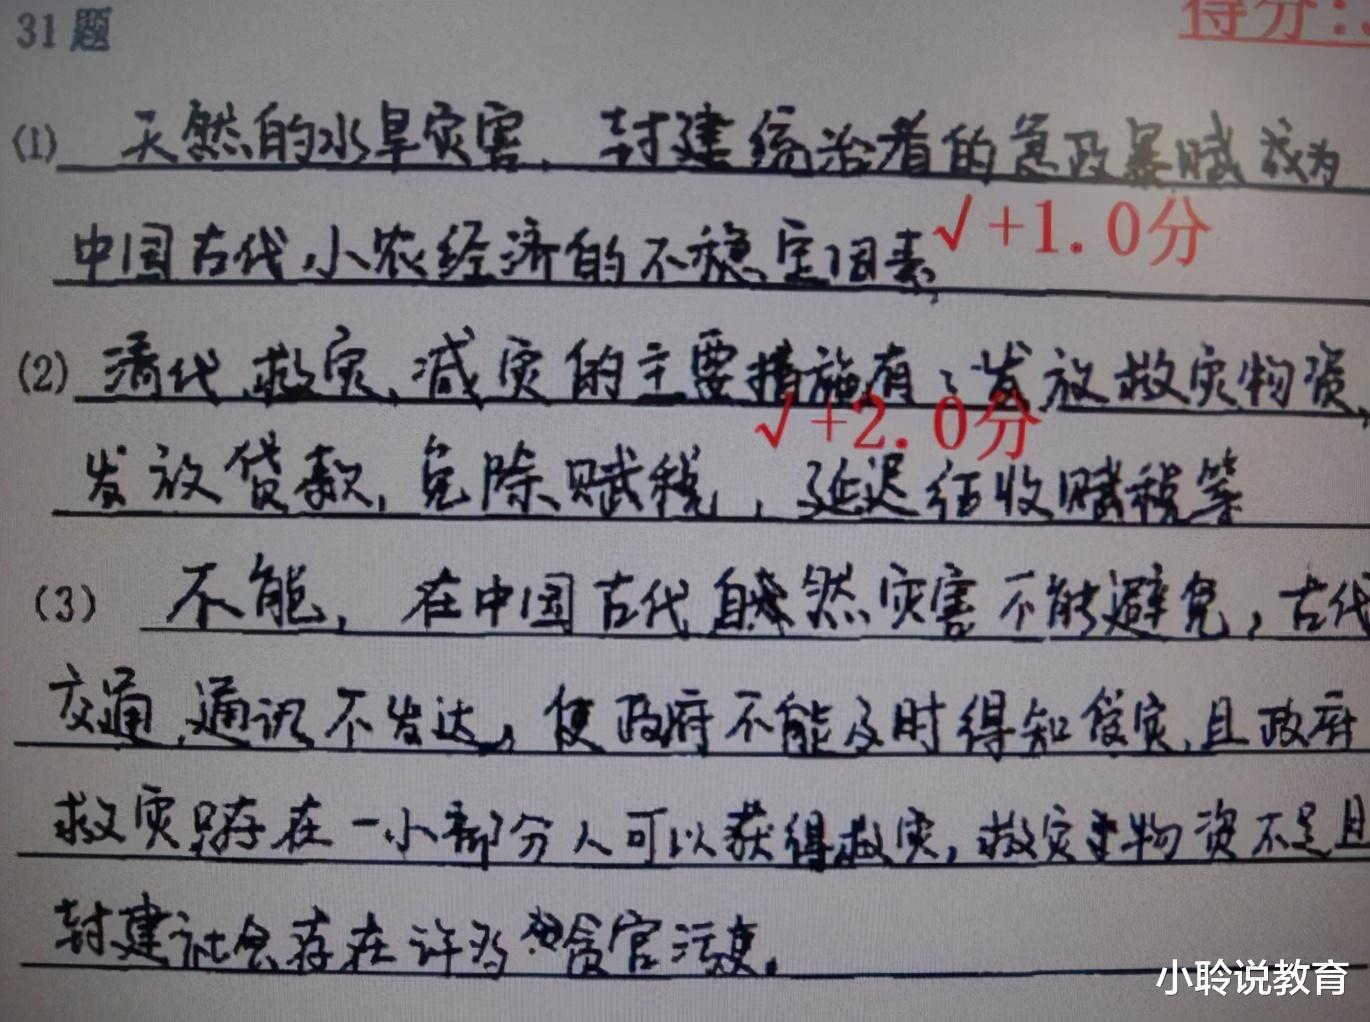 31题
得分:
(1) 天然的水旱灾害、封建统治者的急政暴赋成为
中国古代小农经济的不稳定因素,
√+1.0分
(2) 清代救灾、减灾的主要措施有:发放救灾物资,
√+2.0分
发放贷款,免除赋税,延迟征收赋税等
(3) 不能,在中国古代自然灾害不能避免,古代
交通、通讯不发达,使政府不能及时得知受灾,且政府
救灾只存在一小部分人可以获得救灾,救灾物资不足且
封建社会存在许多贪官污吏。
小聆说教育